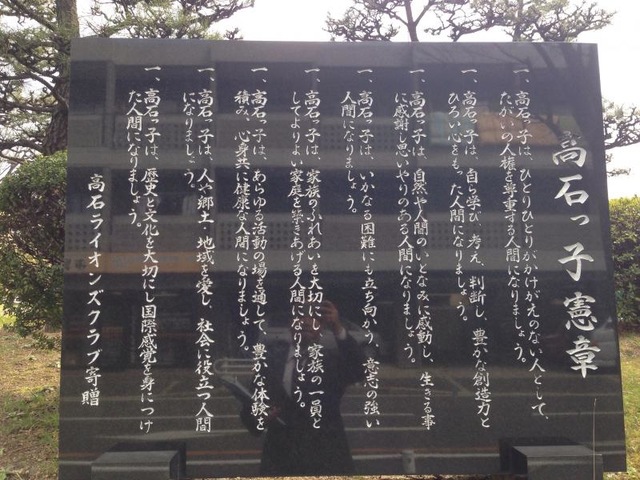 高石っ子憲章
一、高石っ子は、ひとりひとりがかけがえのない人として、
たがいの人権を尊重する人間になりましょう。
一、高石っ子は、自ら学び、考え、判断し、豊かな創造力と
ひろい心をもった人間になりましょう。
一、高石っ子は、自然や人間のいとなみに感動し、生きる事
に感謝し思いやりのある人間になりましょう。
一、高石っ子は、いかなる困難にも立ち向かう、意志の強い
人間になりましょう。
一、高石っ子は、家族のふれあいを大切にし、家族の一員と
してよりよい家庭を築きあげる人間になりましょう。
一、高石っ子は、あらゆる活動の場を通して、豊かな体験を
積み、心身共に健康な人間になりましょう。
一、高石っ子は、人や郷土・地域を愛し、社会に役立つ人間
になりましょう。
一、高石っ子は、歴史と文化を大切にし国際感覚を身につけ
た人間になりましょう。
高石ライオンズクラブ寄贈